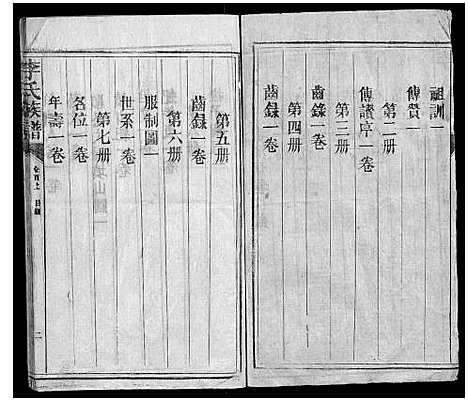 祖訓一
傳贊一
第二册
傳讀序一卷
第三册
齒錄一卷
第四册
齒錄一卷
第五册
齒録一卷
第六册
服制圖一
世系一卷
第七册
名位一卷
年壽一卷
李氏族譜
卷首上 目録
二